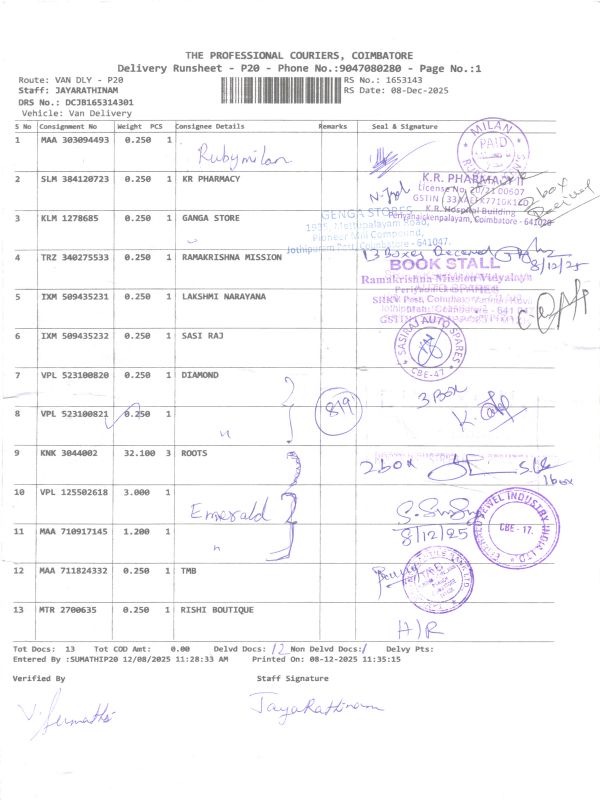 THE PROFESSIONAL COURIERS, COIMBATORE
Delivery Runsheet - P20 - Phone No.:9047080280 - Page No.:1
Route: VAN DLY - P20 RS No.: 1653143
Staff: JAYARATHINAM RS Date: 08-Dec-2025
DRS No.: DCJB165314301
Vehicle: Van Delivery
S No Consignment No Weight PCS Consignee Details Remarks Seal & Signature
1 MAA 303094493 0.250 1 Rubymilan MILAN PAID
2 SLM 384120723 0.250 1 KR PHARMACY K.R. PHARMACY II
License No. 20/21 00607
GSTIN
K.R. Hospital Building
Periyanaickenpalayam, Coimbatore - 641020
2 box Received
3 KLM 1278685 1 GANGA STORE GENGA STORES
Mettupalayam Road,
Pioneer Mill Compound,
Jothipuram Post, Coimbatore - 641047.
4 TRZ 340275533 0.250 1 RAMAKRISHNA MISSION 13 Boxes Received
8/12/25
BOOK STALL
Ramakrishna Mission Vidyalaya
5 IXM 509435231 0.250 1 LAKSHMI NARAYANA SRKV Post, Coimbatore
6 IXM 509435232 0.250 1 SASI RAJ SASIRAJ AUTO SPARES CBE-47
7 VPL 523100820 0.250 1 DIAMOND 3 Box
8 VPL 523100821 0.250 1 " 819
9 KNK 3044002 32.100 3 ROOTS 2 box 1 box
10 VPL 125502618 3.000 1 Emerald EMERALD JEWEL INDUSTRY INDIA LTD CBE - 17.
11 MAA 710917145 1.200 1 " 8/12/25
12 MAA 711824332 0.250 1 TMB
13 MTR 2700635 0.250 1 RISHI BOUTIQUE H/R
Tot Docs: 13 Tot COD Amt: 0.00 Delvd Docs: 12 Non Delvd Docs: 1 Delvy Pts:
Entered By :SUMATHIP20 12/08/2025 11:28:33 AM Printed On: 08-12-2025 11:35:15
Verified By Staff Signature
V. Sumathi JayaRathinam